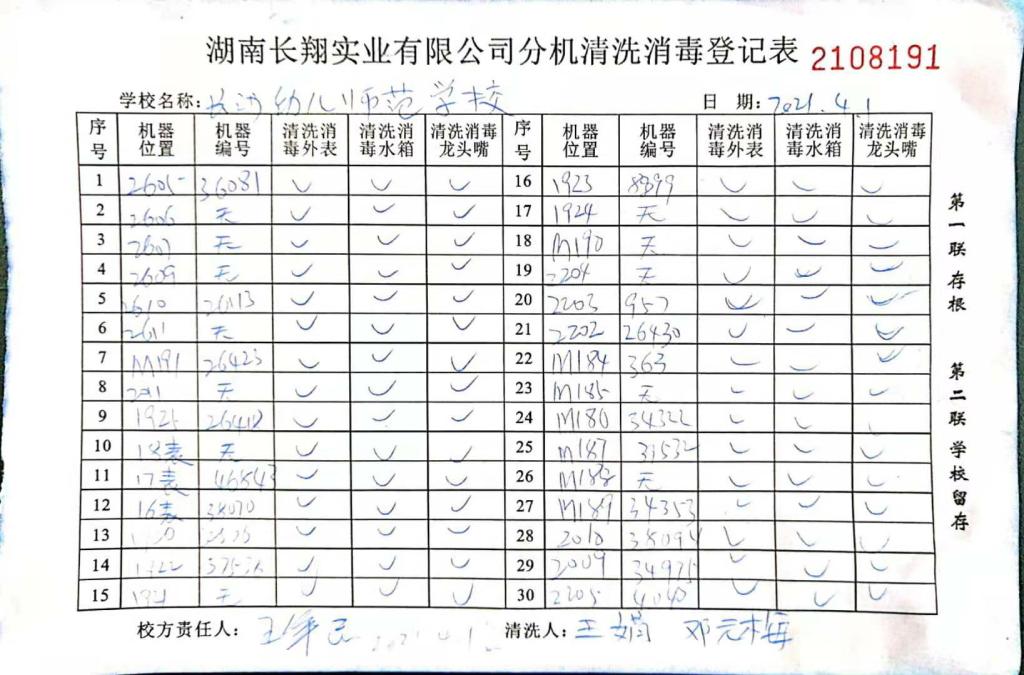 湖南长翔实业有限公司分机清洗消毒登记表 2108191
学校名称：长沙幼儿师范学校 日 期：2021.4.1
序号 机器位置 机器编号 清洗消毒外表 清洗消毒水箱 清洗消毒龙头嘴 序号 机器位置 机器编号 清洗消毒外表 清洗消毒水箱 清洗消毒龙头嘴
1 2605 36081 ✓ ✓ ✓ 16 1923 ✓ ✓ ✓
2 2606 无 ✓ ✓ ✓ 17 1924 无 ✓ ✓ ✓
3 2607 无 ✓ ✓ ✓ 18 M190 无 ✓ ✓ ✓
4 2609 无 ✓ ✓ ✓ 19 2204 无 ✓ ✓ ✓
5 2610 ✓ ✓ ✓ 20 2203 957 ✓ ✓ ✓
6 2611 无 ✓ ✓ ✓ 21 2202 26430 ✓ ✓ ✓
7 M191 26423 ✓ ✓ ✓ 22 M184 363 ✓ ✓ ✓
8 无 ✓ ✓ ✓ 23 M185 无 ✓ ✓ ✓
9 ✓ ✓ ✓ 24 M180 34322 ✓ ✓ ✓
10 18表 无 ✓ ✓ ✓ 25 M187 31532 ✓ ✓ ✓
11 17表 46843 ✓ ✓ ✓ 26 无 ✓ ✓ ✓
12 16表 38070 ✓ ✓ ✓ 27 M189 34353 ✓ ✓ ✓
13 ✓ ✓ ✓ 28 2010 38094 ✓ ✓ ✓
14 1922 ✓ ✓ ✓ 29 2009 34975 ✓ ✓ ✓
15 1921 无 ✓ ✓ ✓ 30 2205 4040 ✓ ✓ ✓
校方责任人： 清洗人：王娟 邓元梅
第一联存根
第二联学校留存